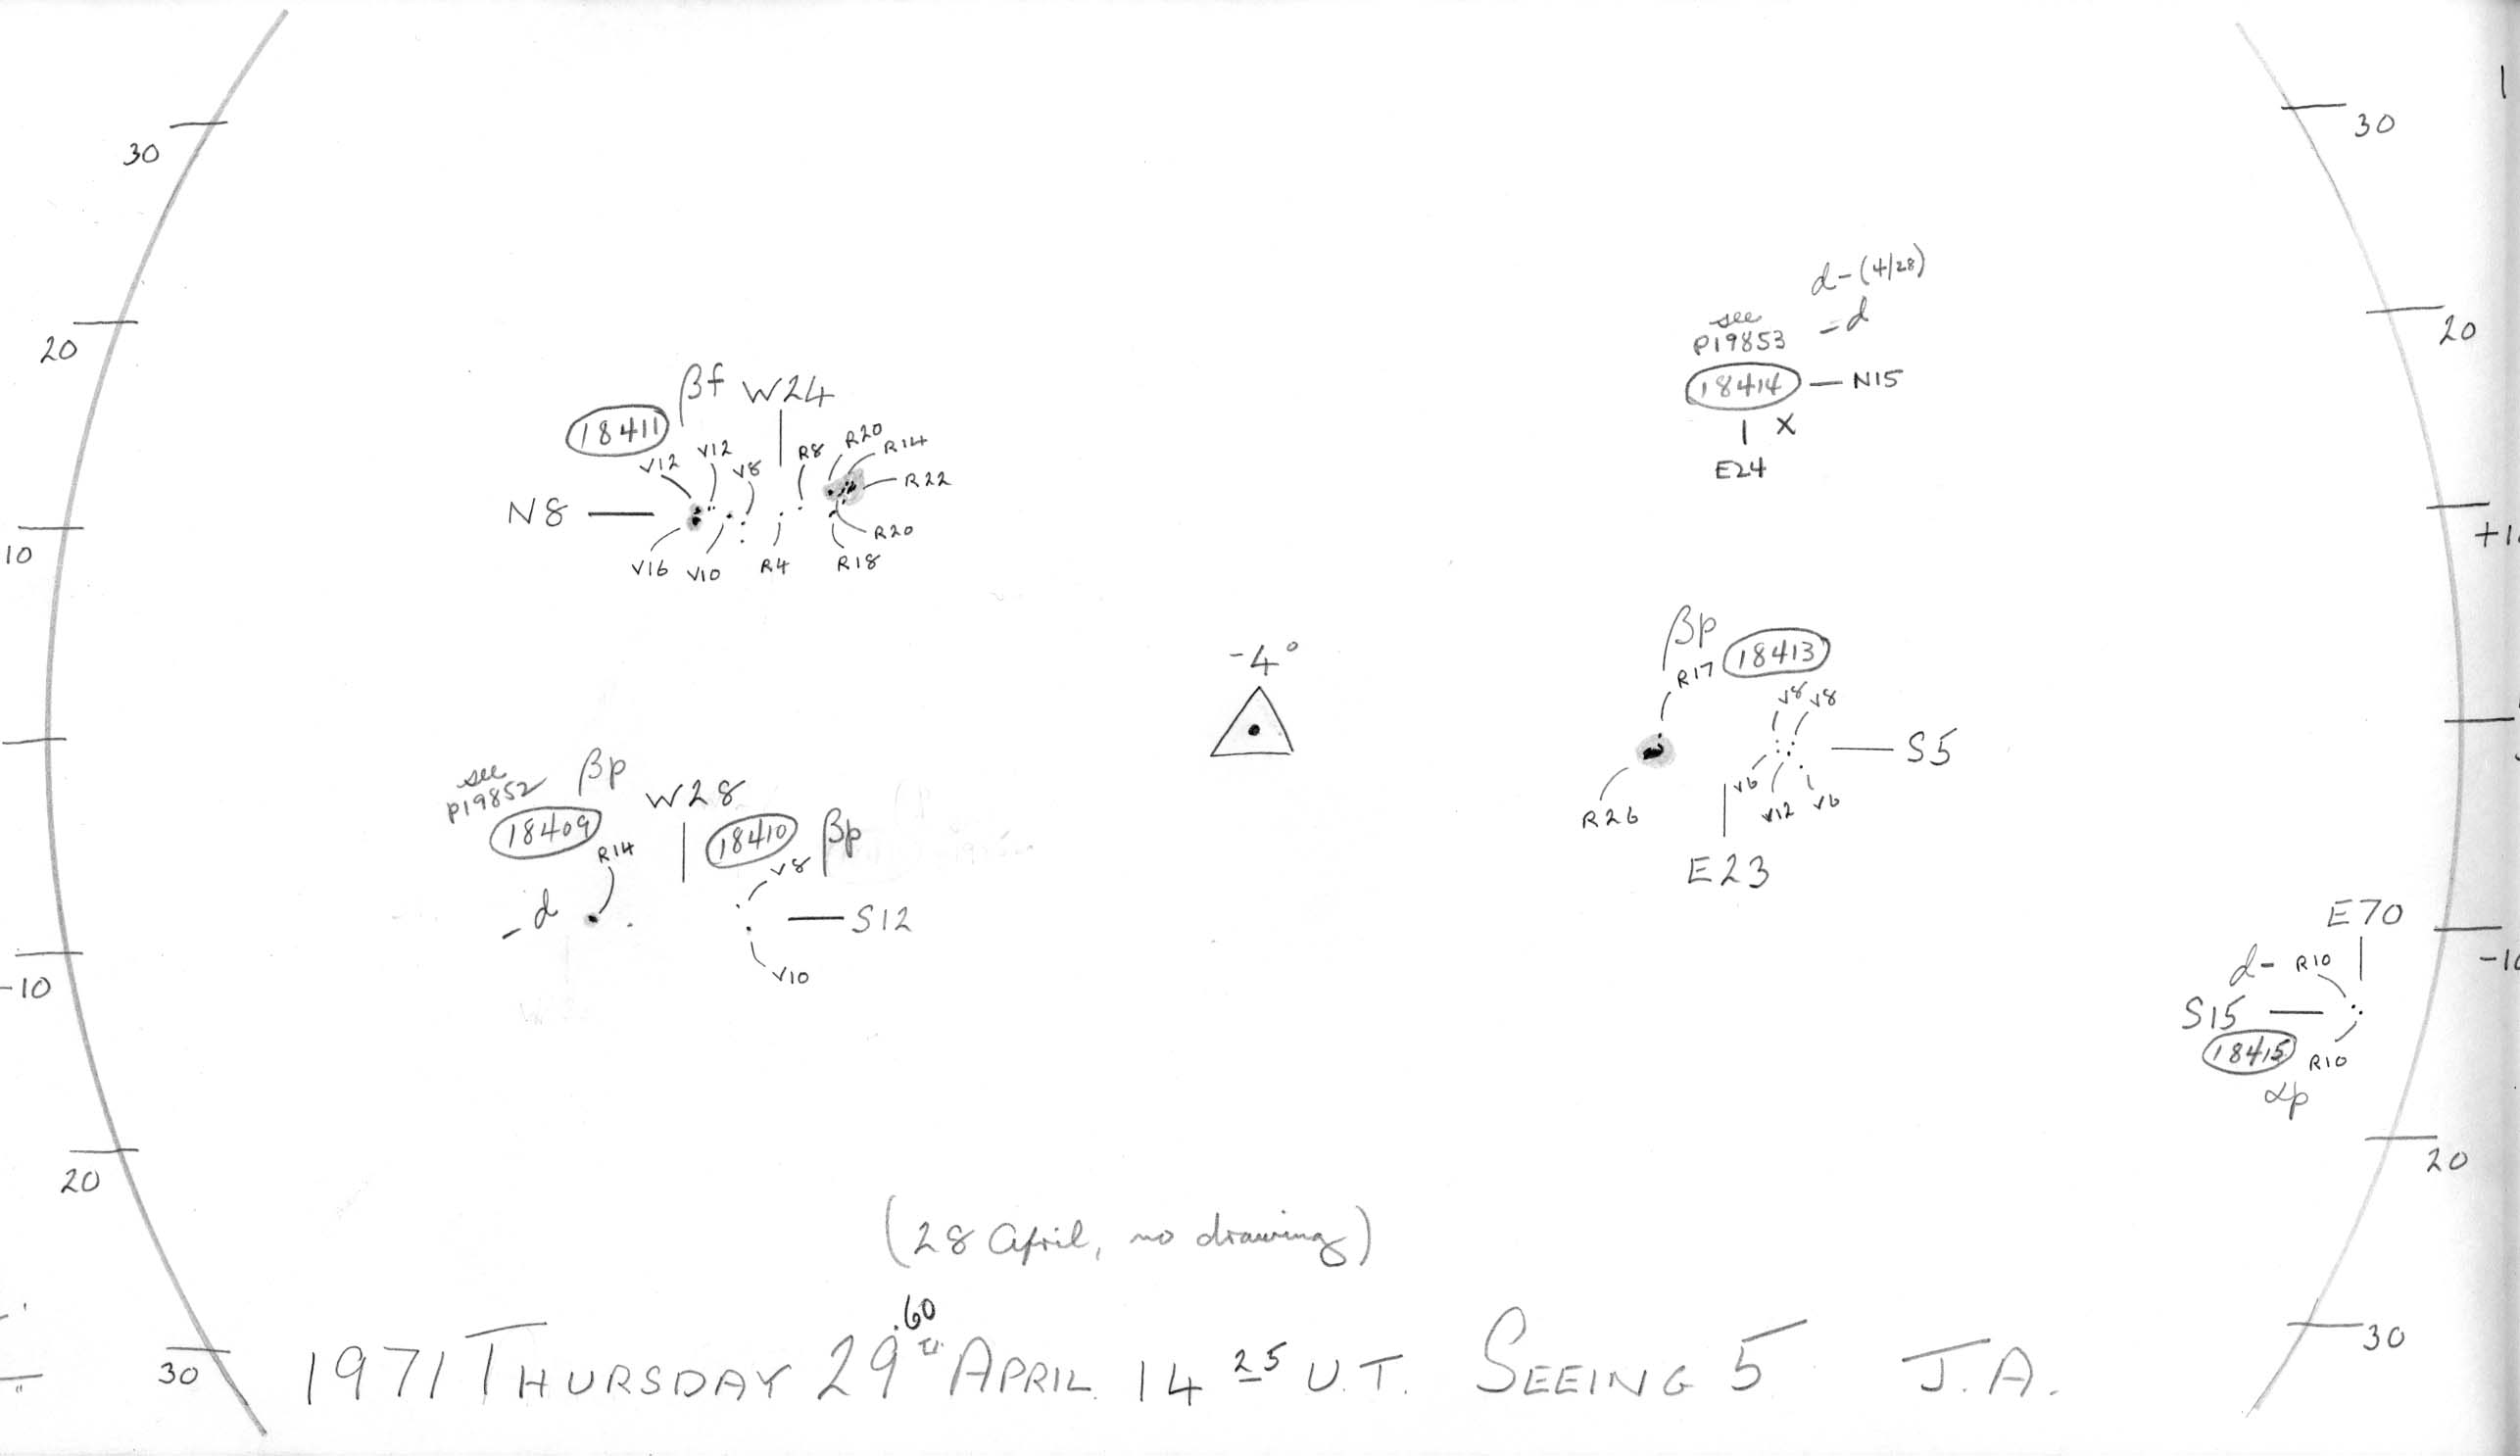 30
30
20
20
10
+1
-10
-10
20
20
30
30
d-(4/28)
see -d
p19853
18414 — N15
X
E24
βf W24
18411
V12 V12 V8 R8 R20 R14
R22
N8
R20
V16 V10 R4 R18
-4°
βp
R17 18413
V8 V8
S5
V6 V12 V6
R26
E23
see βp
p19852 W28
18409 18410 βp
R14 V8
-d S12
V10
E70
d- R10
S15
18415 R10
αp
(28 April, no drawing)
.60
1971 THURSDAY 29th APRIL. 14 25 U.T. SEEING 5 J.A.